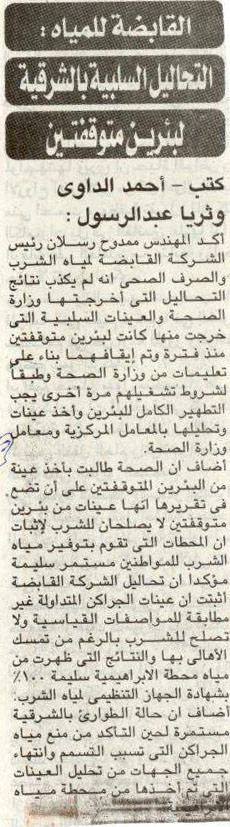 القابضة للمياه :
التحاليل السلبية بالشرقية
لبئرين متوقفتين
كتب - أحمد الداوى
وثريا عبدالرسول :
أكد المهندس ممدوح رسلان رئيس
الشركة القابضة لمياه الشرب
والصرف الصحى انه لم يكذب نتائج
التحاليل التى أخرجتها وزارة
الصحة والعينات السلبية التى
خرجت منها كانت لبئرين متوقفتين
منذ فترة وتم إيقافهما بناء على
تعليمات من وزارة الصحة وطبقا
لشروط تشغيلهم مرة أخرى يجب
التطهير الكامل للبئرين وأخذ عينات
وتحليلها بالمعامل المركزية ومعامل
وزارة الصحة.
أضاف ان الصحة طالبت باخذ عينة
من البئرين المتوقفتين على أن تضع
فى تقريرها انها عينات من بئرين
متوقفتين لا يصلحان للشرب لإثبات
ان المحطات التى تقوم بتوفير مياه
الشرب للمواطنين مستمر سليمة
مؤكدا ان تحاليل الشركة القابضة
أثبتت ان عينات الجراكن المتداولة غير
مطابقة للمواصفات القياسية ولا
تصلح للشرب بالرغم من تمسك
الأهالى بها والنتائج التى ظهرت من
مياه محطة الابراهيمية سليمة ١٠٠٪
بشهادة الجهاز التنظيمى لمياه الشرب.
أضاف ان حالة الطوارئ بالشرقية
مستمرة لحين التأكد من منع مياه
الجراكن التى تسبب التسمم وانتهاء
جميع الجهات من تحليل العينات
التى تم أخذها من محطة مياه